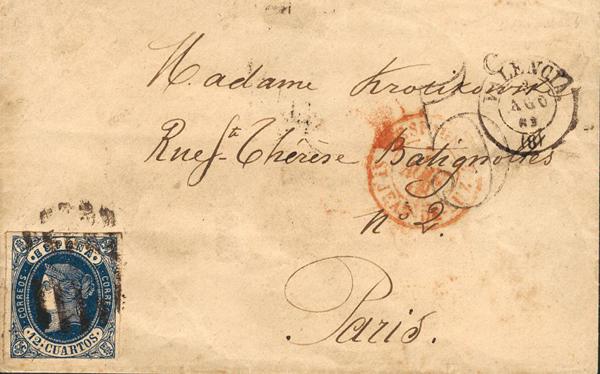 Madame Krotikowik
Rue Ste Thérèse Batignolles
n° 2.
Paris.
VALENCIA
2
AGO
63
(8)
ESPAGNE
ESPAÑA
CORREOS
CORREOS
12 CUARTOS